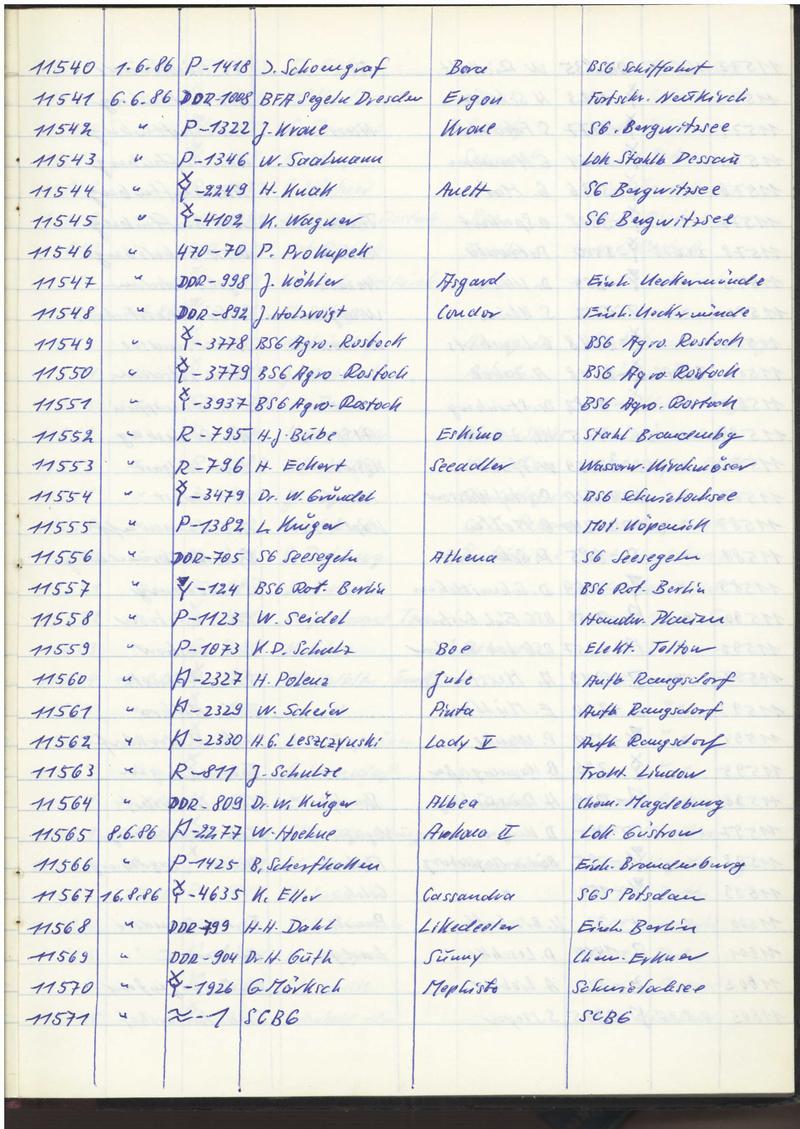 11540 1.6.86 P-1418 J. Schoengraf Bora BSG Schiffahrt
11541 6.6.86 DDR-1008 BFA Segeln Dresden Ergon Fortschr. Neukirch
11542 " P-1322 J. Krone Krone SG. Bergwitzsee
11543 " P-1346 W. Saalmann Lok Stahlb Dessau
11544 " -2249 H. Knak Anett SG Bergwitzsee
11545 " -4102 K. Wagner SG Bergwitzsee
11546 " 470-70 P. Prokupek
11547 " DDR-998 J. Köhler Asgard Einh. Ueckermünde
11548 " DDR-892 J. Holzvoigt Condor Einh. Ueckermünde
11549 " -3778 BSG Agro. Rostock BSG Agro. Rostock
11550 " -3779 BSG Agro-Rostock BSG Agro. Rostock
11551 " -3937 BSG Agro-Rostock BSG Agro. Rostock
11552 " R-795 H.J. Bube Eskimo Stahl Brandenbg
11553 " R-796 H. Eckert Seeadler Wasserw. Kirchmöser
11554 " -3479 Dr. W. Gründel BSG Schwielochsee
11555 " P-1382 L. Krüger Mot. Köpenick
11556 " DDR-705 SG Seesegeln Athena SG Seesegeln
11557 " -124 BSG Rot. Berlin BSG Rot. Berlin
11558 " P-1123 W. Seidel Handw. Plauen
11559 " P-1073 K.D. Schulz Boe Elekt. Teltow
11560 " -2327 H. Polenz Jule Aufb Rangsdorf
11561 " -2329 W. Scheier Pinta Aufb Rangsdorf
11562 " -2330 H.G. Leszczynski Lady V Aufb. Rangsdorf
11563 " R-811 J. Schulze Trakt. Lindow
11564 " DDR-809 Dr. W. Krüger Albea Chem. Magdeburg
11565 8.6.86 -2277 W. Hoehne Arkona II Lok Güstrow
11566 " P-1425 B. Einh. Brandenburg
11567 16.8.86 -4635 K. Eller Cassandra SGS Potsdam
11568 " DDR-799 H.H. Dahl Likedeeler Einh Berlin
11569 " DDR-904 Dr. H. Guth Sunny Chem. Erkner
11570 " -1926 G Märksch Mephisto Schwielochsee
11571 " -1 SCBG SCBG